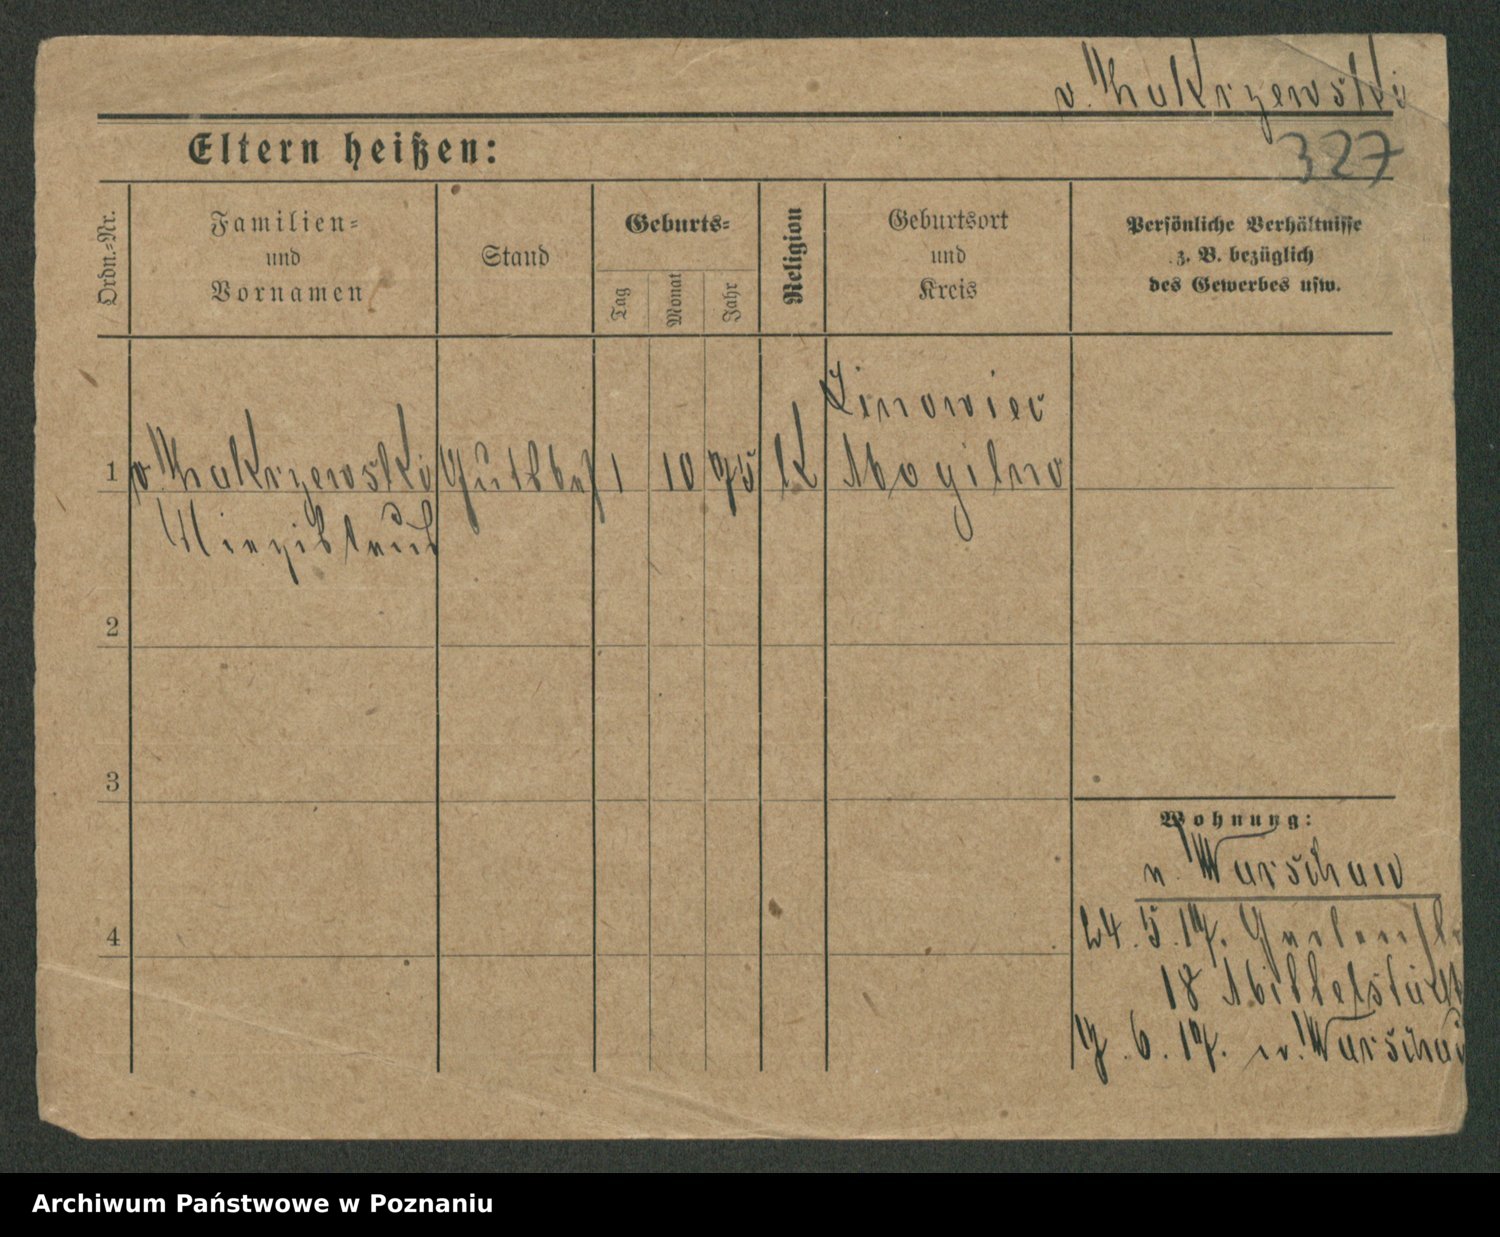 v. Zakrzewski
Eltern heißen:
327
Ordn.-Nr.
Familien-
und
Vornamen
Stand
Geburts-
Tag
Monat
Jahr
Religion
Geburtsort
und
Kreis
Persönliche Verhältnisse
z. B. bezüglich
des Gewerbes usw.
1
v. Zakrzewski
Gutsbes
1
10
75
K
Linowiec
Mogilno
2
3
4
Wohnung:
n. Warschau
24. 5. 17. Gartenstr
18
7. 6. 17. n. Warschau
Archiwum Państwowe w Poznaniu